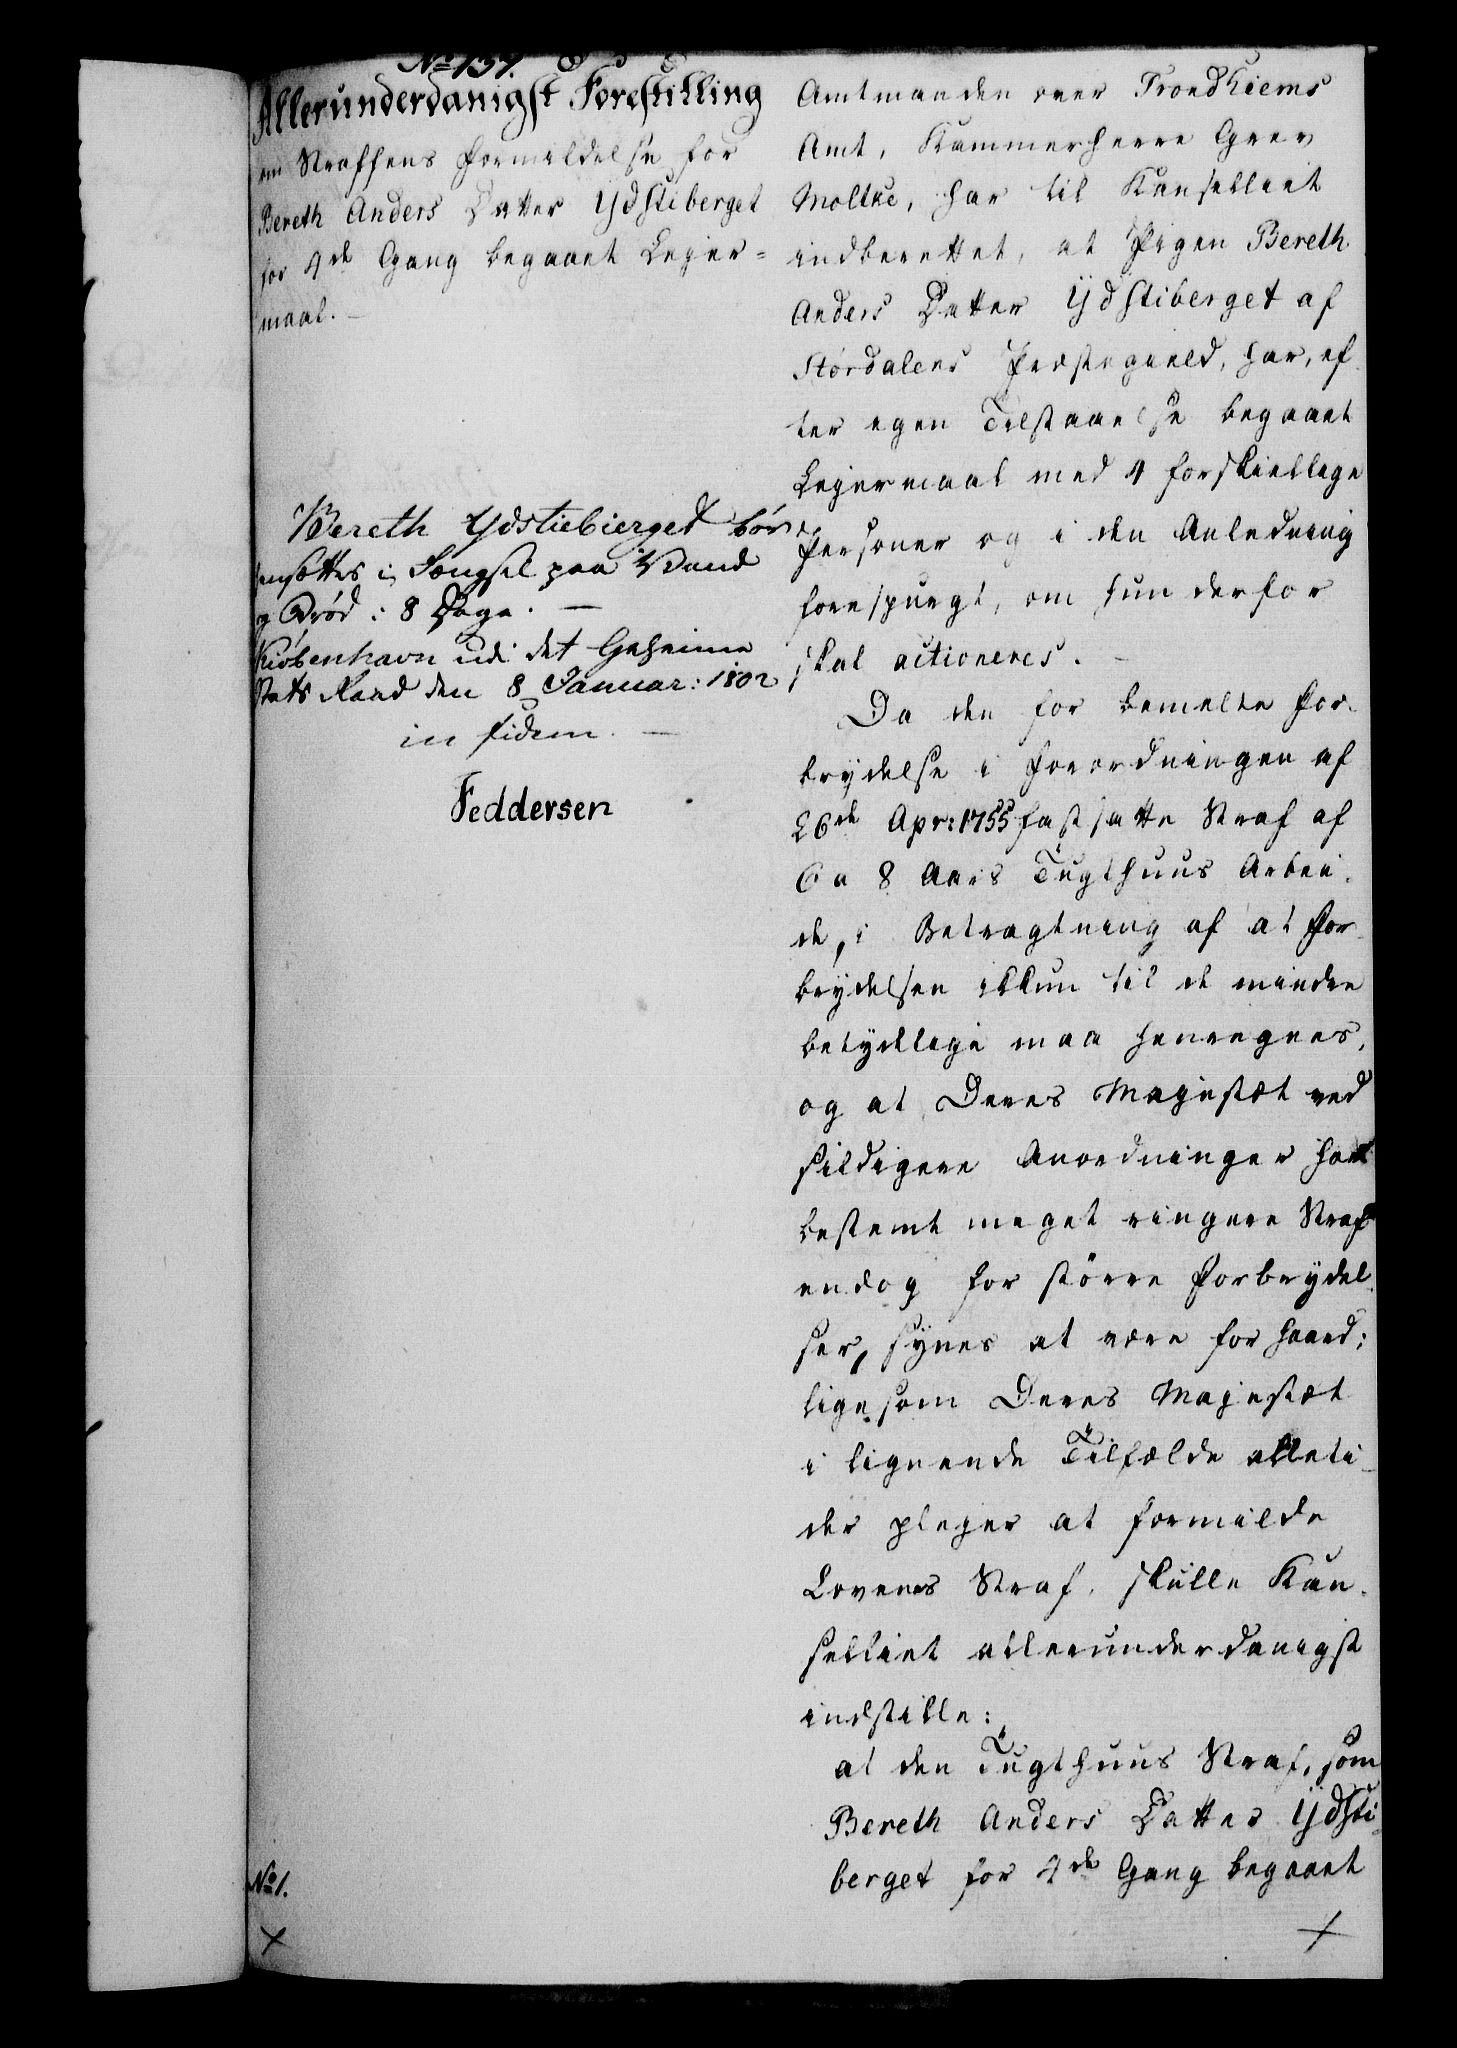 No 137.
Allerunderdanigst Forestilling
om Straffens Formildelse for
Bereth Anders Datter Ydstiberget
for 4de Gang begaaet Lejer=
maal. —
Bereth Ydstiebierget bør
hensættes i Fængsel paa Vand
og Brød i 8 Dage. —
Kiøbenhavn udi det Geheime
Stats Raad den 8 Januar: 1802
in fidem. —
Feddersen
Amtmanden over Trondhiems
Amt, Kammerherre Grev
Moltke, har til Kanselliet
indberettet, at Pigen Bereth
Anders Datter Ydstiberget af
Størdalens Præstegield, har, ef-
ter egen Tilstaaelse begaaet
Lejermaal med 4 forskiellige
Personer og i den Anledning
forespurgt, om hun derfor
skal actioneres. —
Da den for bemelte For-
brydelse i Forordningen af
26de Apr: 1755 fastsatte Straf af
6 a 8 Aars Tugthuus Arbei-
de, i Betragtning af at For-
brydelsen ikkun til de mindre
betydelige maa henregnes,
og at Deres Majestæt ved
sildigere Anordninger har
bestemt meget ringere Straf
endog for større Forbrydel-
ser, synes at være for haard;
ligesom Deres Majestæt
i lignende Tilfælde alleti-
der plejer at formilde
Lovenes Straf, skulle Kan-
selliet allerunderdanigst
indstille:
at den Tugthuus Straf, som
Bereth Anders Datter Ydsti-
berget for 4de Gang begaaet
No 1.